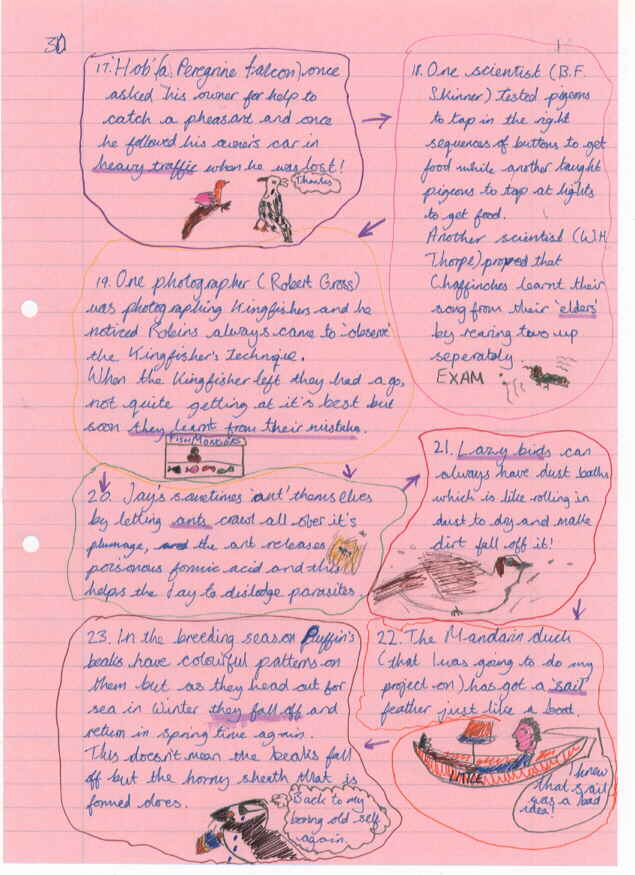 30
17. 'Hob' (a Peregrine falcon) once
asked his owner for help to
catch a pheasant and once
he followed his owner's car in
heavy traffic when he was lost!
Thanks
18. One scientist (B.F.
Skinner) tested pigeons
to tap in the right
sequences of buttons to get
food while another taught
pigeons to tap at lights
to get food.
Another scientist (W.H
Thorpe) proved that
Chaffinches learnt their
song from their 'elders'
by rearing two up
seperately
EXAM
19. One photographer (Robert Gross)
was photographing Kingfishers and he
noticed Robins always came to 'observe'
the Kingfisher's Technique.
When the Kingfisher left they had a go,
not quite getting at it's best but
soon they learnt from their mistakes.
20. Jay's sometimes 'ant' themselves
by letting ants crawl all over it's
plumage, and the ant releases
poisonous formic acid and this
helps the Jay to dislodge parasites.
21. Lazy birds can
always have dust baths
which is like rolling in
dust to dry and make
dirt fall off it!
22. The Mandarin duck
(that I was going to do my
project on) has got a 'sail'
feather just like a boat.
I knew
that sail
was a bad
idea!
23. In the breeding season Puffin's
beaks have colourful patterns on
them but as they head out for
sea in Winter they fall off and
return in spring time again.
This doesn't mean the beaks fall
off but the horny sheath that is
formed does.
Back to my
boring old self
again.